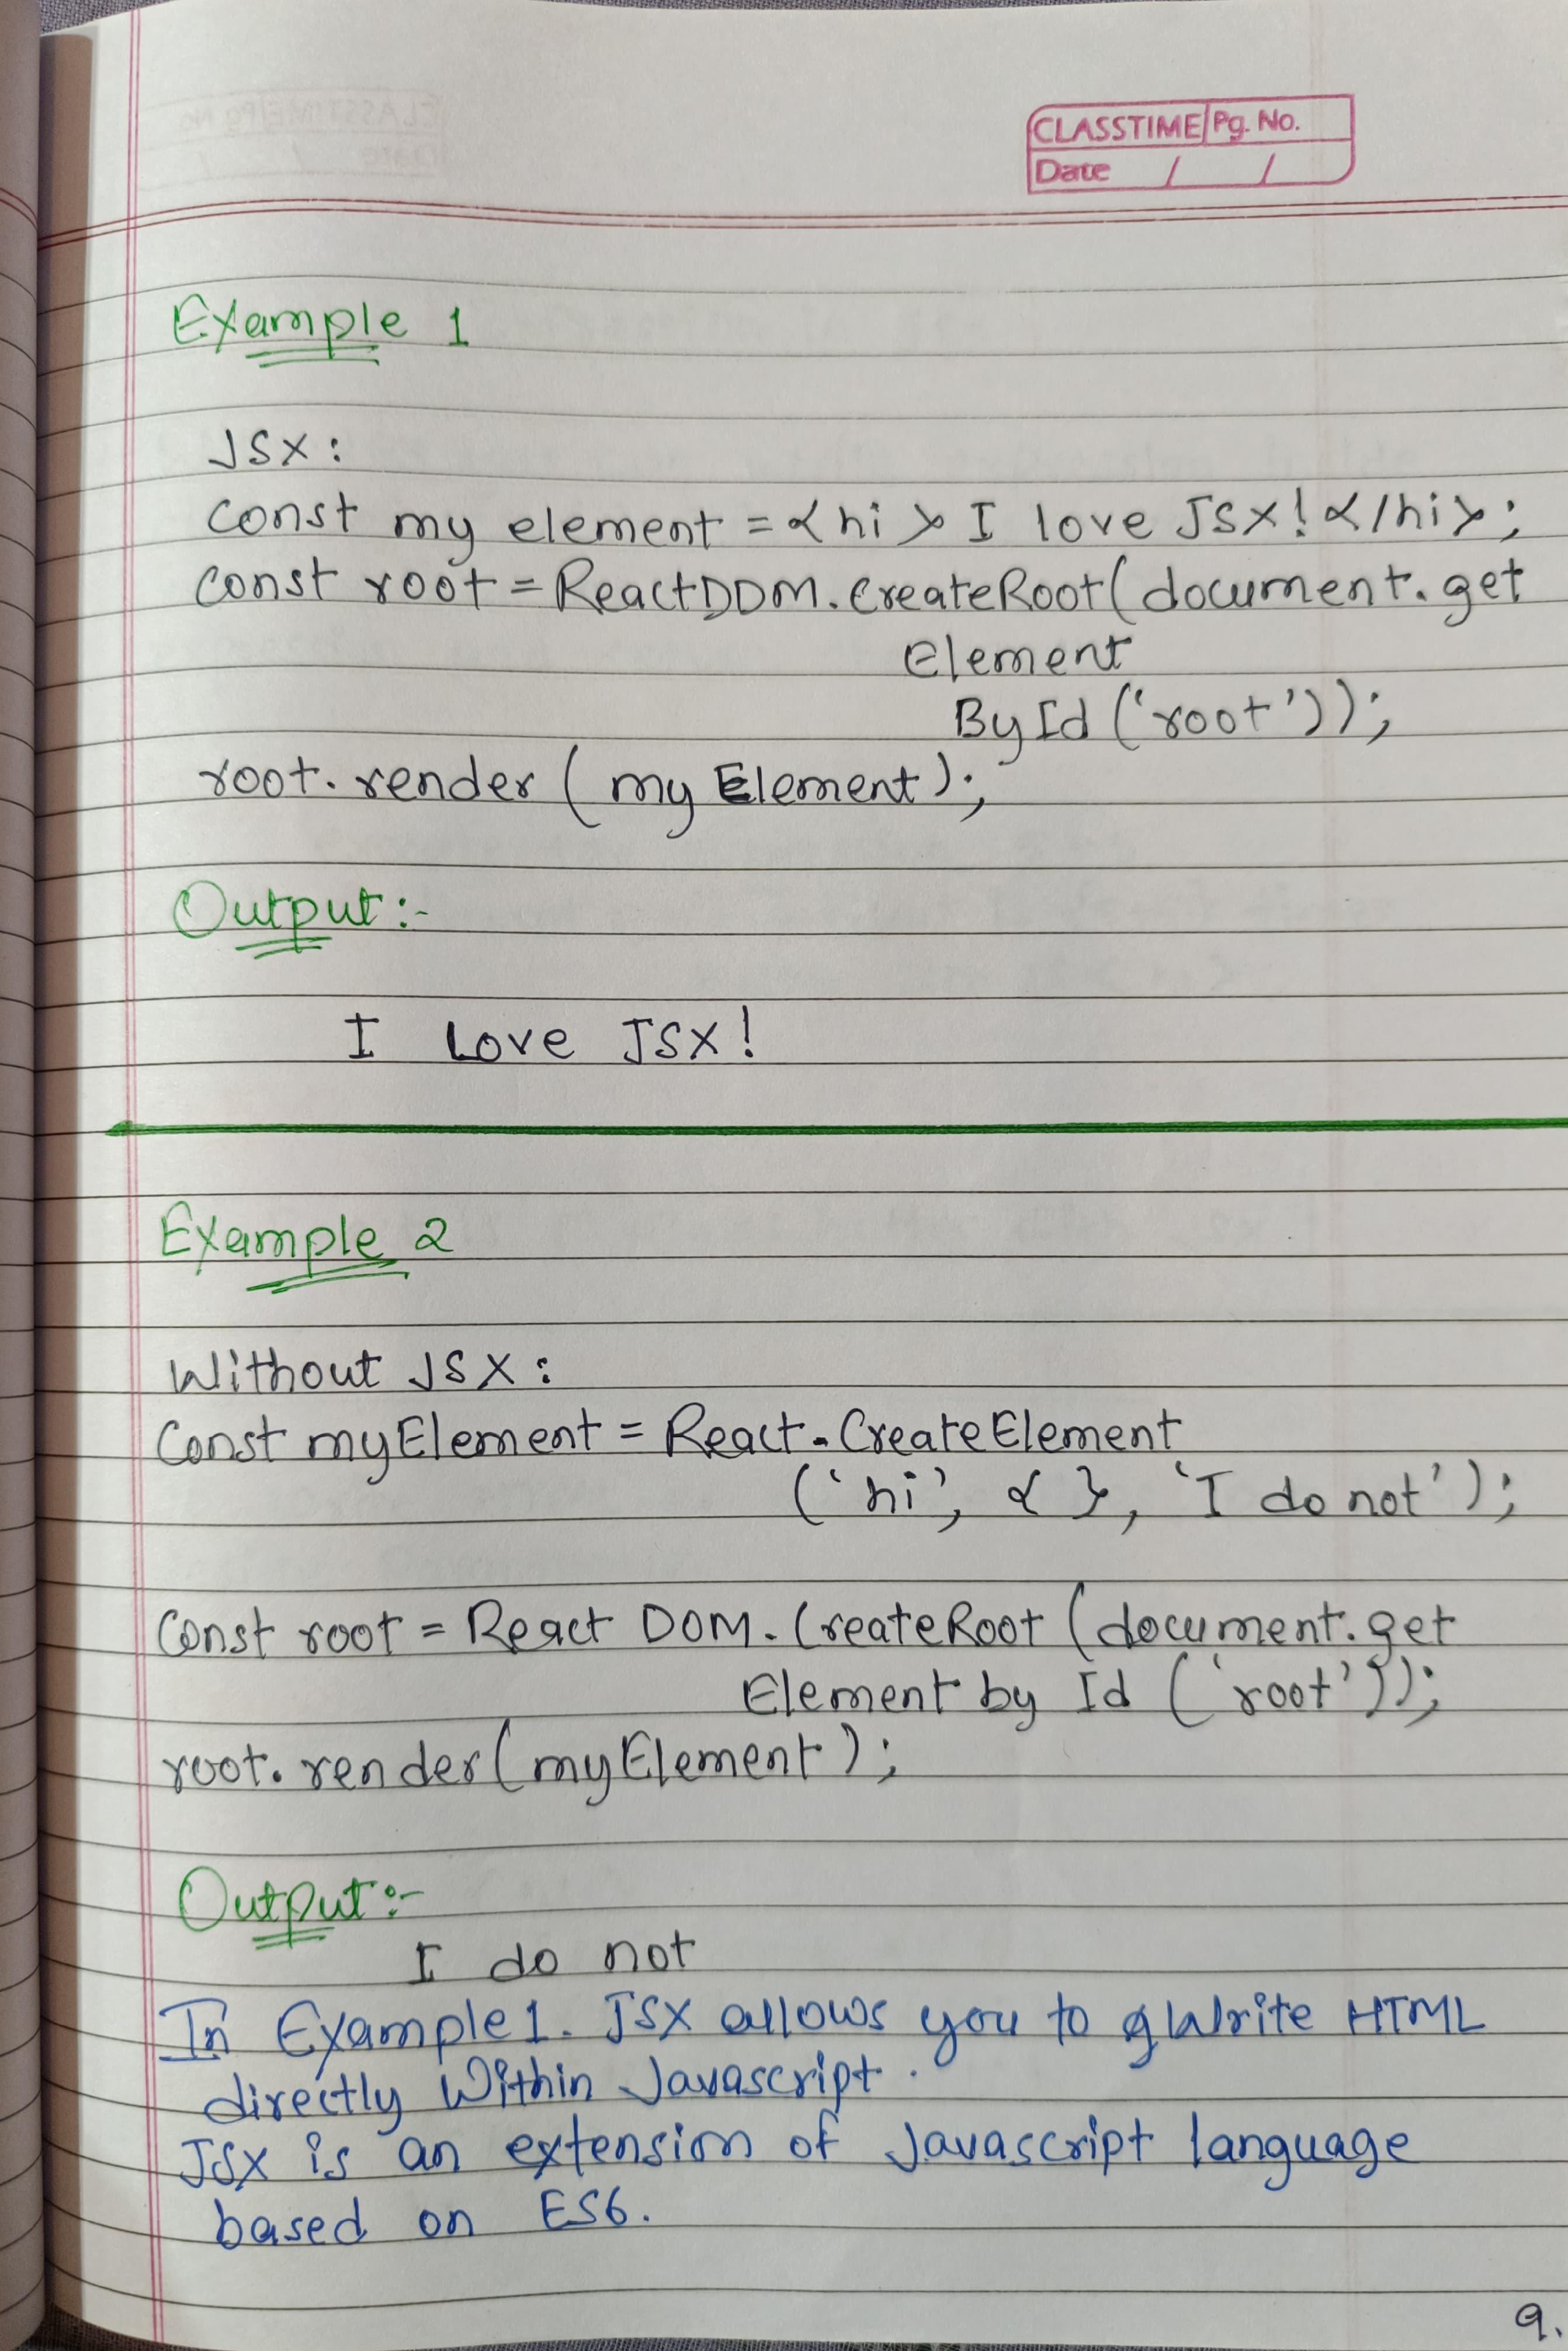 CLASSTIME Pg. No.
Date / /
Example 1
JSX:
const my element = <hi> I love JSX! </hi>;
const root = ReactDDM.createRoot(document.get
Element
By Id ('root'));
root.render ( my Element);
Output:-
I Love JSX!
Example 2
Without JSX:
Const myElement = React.CreateElement
('hi', { }, 'I do not');
Const root = React DOM.CreateRoot (document.get
Element by Id ('root'));
root.render(myElement);
Output:-
I do not
In Example 1. JSX allows you to write HTML
directly Within Javascript.
JSX is an extension of Javascript language
based on ES6.
9.